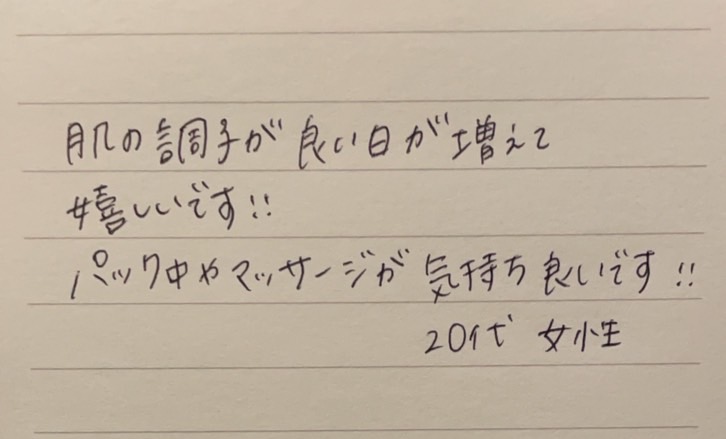 肌の調子が良い日が増えて
嬉しいです!!
パック中やマッサージが気持ち良いです!!
20代 女性